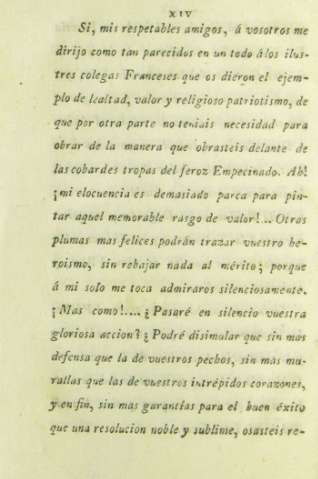 XIV
Si, mis respetables amigos, á vosotros me
dirijo como tan parecidos en un todo álos ilus-
tres colegas Franceses que os dieron el ejem-
plo de lealtad, valor y religioso patriotismo, de
que por otra parte no teniais necesidad para
obrar de la manera que obrasteis delante de
las cobardes tropas del feroz Empecinado. Ah!
¡mi elocuencia es demasiado parca para pin-
tar aquel memorable rasgo de valor!... Otras
plumas mas felices podrán trazar vuestro he-
roismo, sin rebajar nada al mérito; porque
á mi solo me toca admiraros silenciosamente.
¡Mas como!.... ¿Pasaré en silencio vuestra
gloriosa accion? ¿Podré disimular que sin mas
defensa que la de vuestros pechos, sin mas mu-
rallas que las de vuestros intrépidos corazones,
y en fin, sin mas garantías para el buen éxito
que una resolucion noble y sublime, osasteis re-